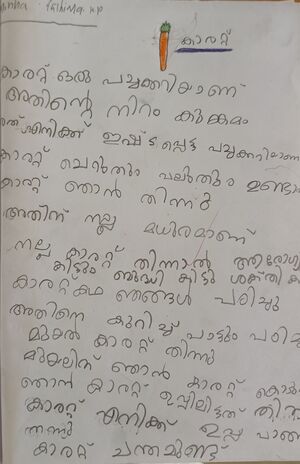 minha fathima kp
കാരറ്റ്
കാരറ്റ് ഒരു പച്ചക്കറിയാണ്
അതിന്റെ നിറം കുങ്കുമം
എനിക്ക് ഇഷ്ടപ്പെട്ട പച്ചക്കറിയാണ്
കാരറ്റ് ചെറുതും വലുതും ഉണ്ടാ
കാരറ്റ് ഞാൻ തിന്നു
അതിന് നല്ല മധുരമാണ്
നല്ല കാരറ്റ് തിന്നാൽ ആരോഗ്യ
കിട്ടും ബുദ്ധി കിട്ടും ശക്തി
കാരറ്റ് കഥ ഞങ്ങൾ പഠിച്ചു
അതിനെ കുറിച്ച് പാട്ടും
മുയൽ കാരറ്റ് തിന്നു
മുയലിന് ഞാൻ കാരറ്റ്
ഞാൻ കാരറ്റ് ഉപ്പിലിട്ടത്
കാരറ്റ് എനിക്ക് ഉപ്പ
തന്നു
കാരറ്റ് ചന്തമുണ്ട്